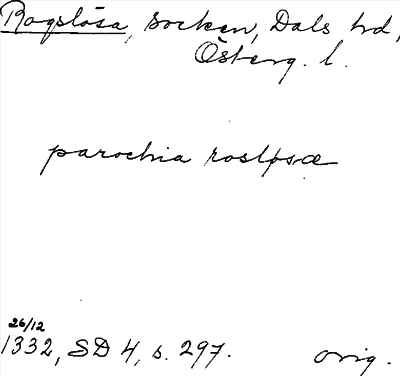 Rogslösa, socken, Dals hd,
Österg. l.
parochia roslpsæ
26/12
1332, SD 4, s. 297. orig.